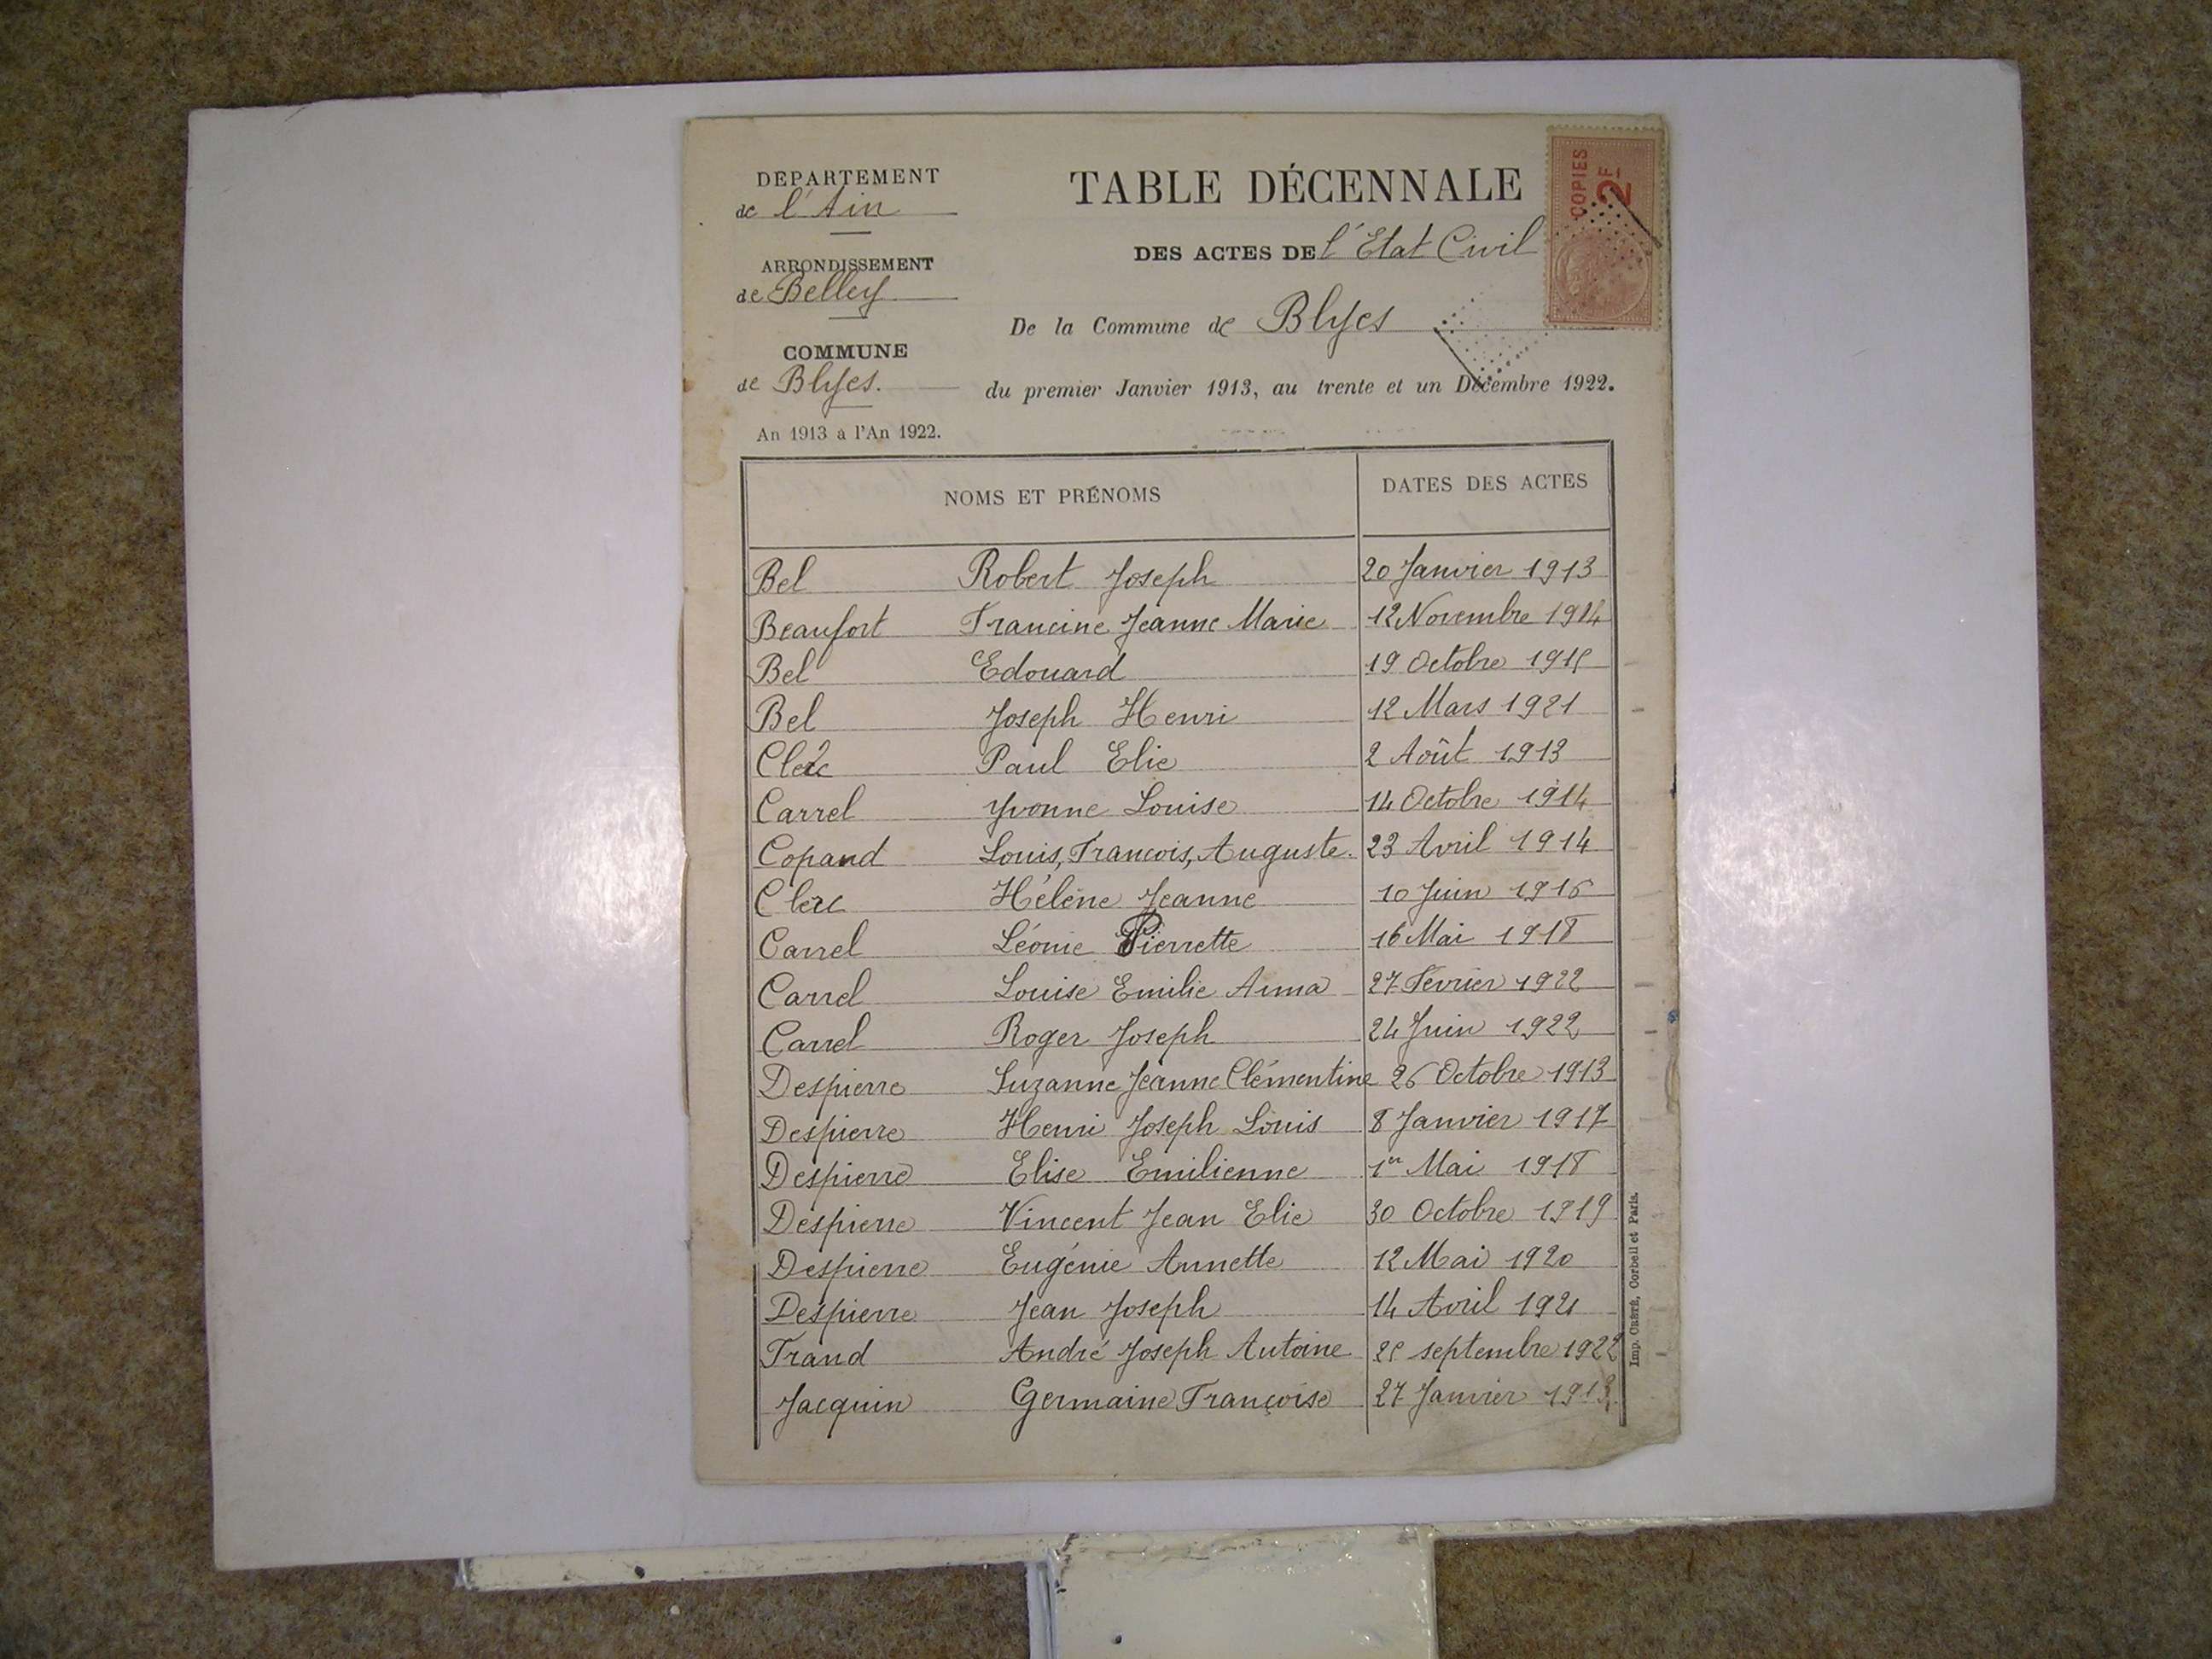 DEPARTEMENT
de l'Ain
ARRONDISSEMENT
de Belley
COMMUNE
de Blyes.
An 1913 à l'An 1922.
TABLE DÉCENNALE
DES ACTES DE l'Etat Civil
De la Commune de Blyes
du premier Janvier 1913, au trente et un Décembre 1922.
COPIES
2F
NOMS ET PRÉNOMS DATES DES ACTES
Bel Robert Joseph 20 Janvier 1913
Beaufort Francine Jeanne Marie 12 Novembre 1914
Bel Edouard 19 Octobre
Bel Joseph Henri 12 Mars 1921
Clerc Paul Elie 2 Août 1913
Carrel Yvonne Louise 14 Octobre 1914
Copand Louis, François, Auguste. 23 Avril 1914
Clerc Hélène Jeanne 10 Juin 1916
Carrel Léonie Pierrette 16 Mai 1918
Carrel Louise Emilie Anna 27 Février 1922
Carrel Roger Joseph 24 Juin 1922
Despierre Suzanne Jeanne Clémentine 26 Octobre 1913
Despierre Henri Joseph Louis 8 Janvier 1917
Despierre Elise Emilienne 1er Mai 1918
Despierre Vincent Jean Elie 30 Octobre 1919
Despierre Eugénie Annette 12 Mai 1920
Despierre Jean Joseph 14 Avril 1921
Trand André Joseph Antoine septembre 1922
Jacquin Germaine Françoise 27 Janvier 1913
Imp. CRÉTÉ, Corbeil et Paris.